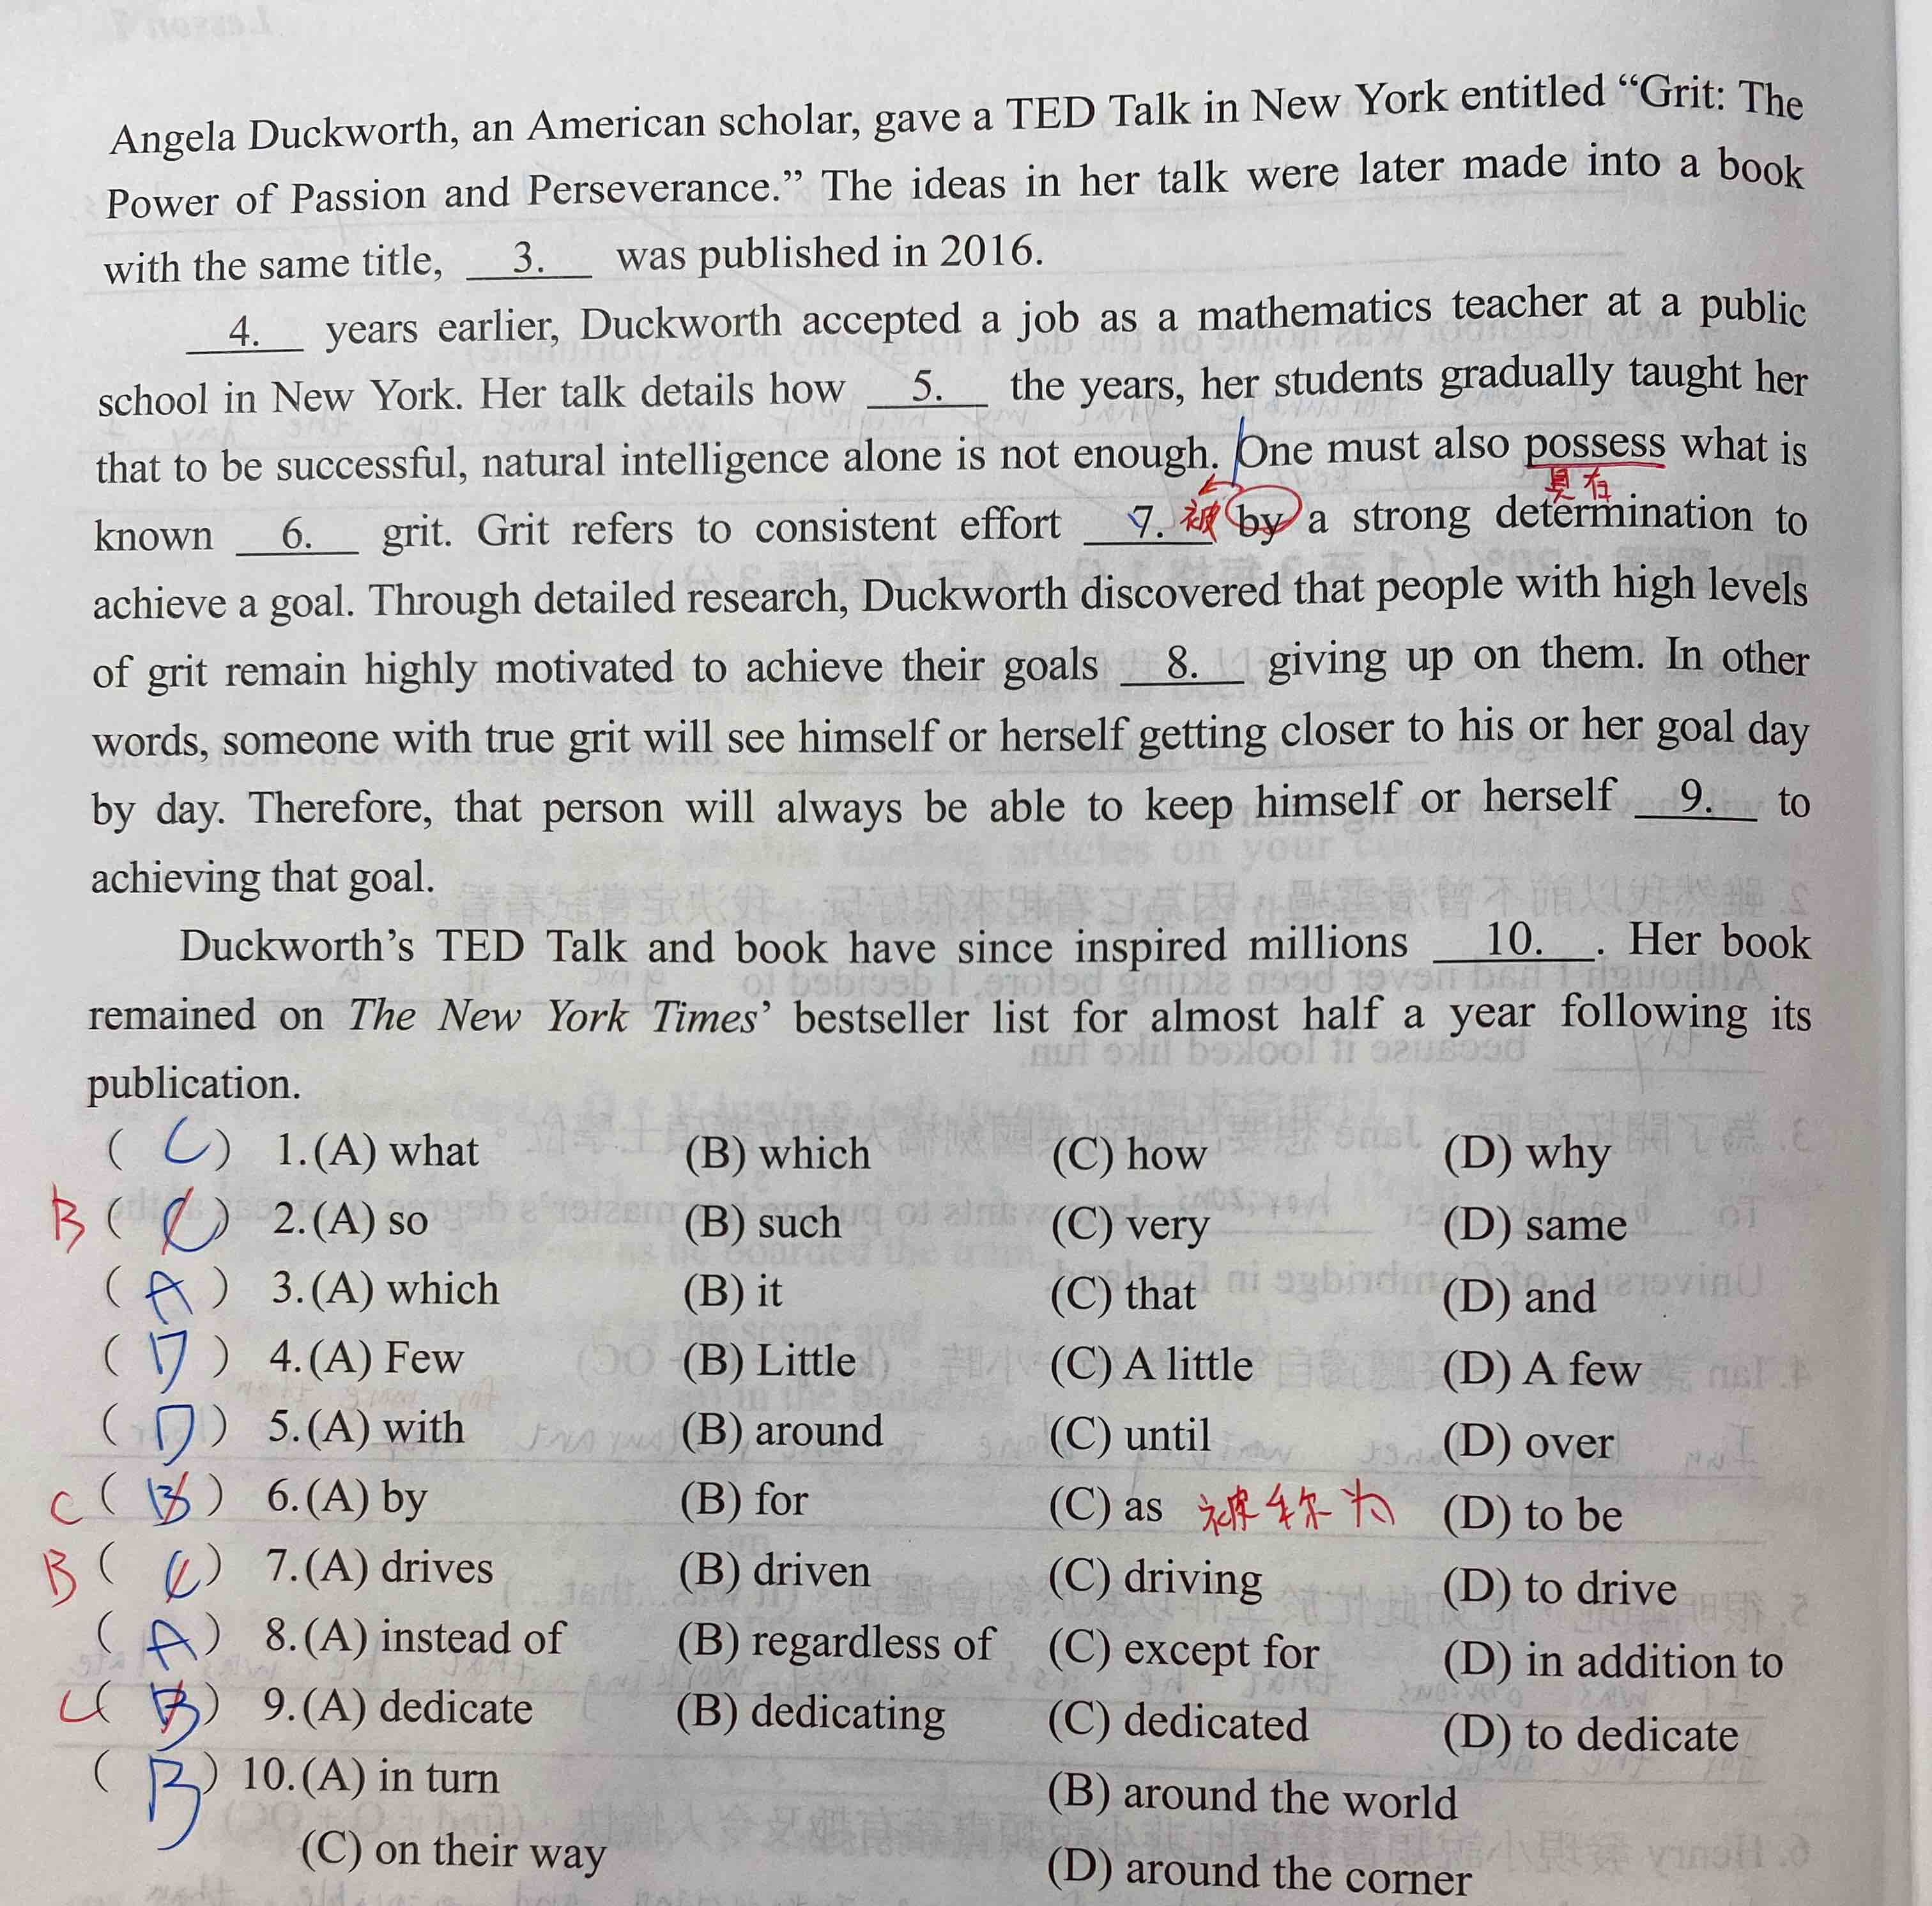 Angela Duckworth, an American scholar, gave a TED Talk in New York entitled “Grit: The
Power of Passion and Perseverance.” The ideas in her talk were later made into a book
with the same title, 3. was published in 2016.
4. years earlier, Duckworth accepted a job as a mathematics teacher at a public
school in New York. Her talk details how 5. the years, her students gradually taught her
that to be successful, natural intelligence alone is not enough. One must also possess what is
具有
known 6. grit. Grit refers to consistent effort 7. 被 by a strong determination to
achieve a goal. Through detailed research, Duckworth discovered that people with high levels
of grit remain highly motivated to achieve their goals 8. giving up on them. In other
words, someone with true grit will see himself or herself getting closer to his or her goal day
by day. Therefore, that person will always be able to keep himself or herself 9. to
achieving that goal.
Duckworth’s TED Talk and book have since inspired millions 10. . Her book
remained on The New York Times’ bestseller list for almost half a year following its
publication.
( C ) 1.(A) what (B) which (C) how (D) why
B ( C ) 2.(A) so (B) such (C) very (D) same
( A ) 3.(A) which (B) it (C) that (D) and
( D ) 4.(A) Few (B) Little (C) A little (D) A few
( D ) 5.(A) with (B) around (C) until (D) over
C ( B ) 6.(A) by (B) for (C) as 被称为 (D) to be
B ( C ) 7.(A) drives (B) driven (C) driving (D) to drive
( A ) 8.(A) instead of (B) regardless of (C) except for (D) in addition to
C ( B ) 9.(A) dedicate (B) dedicating (C) dedicated (D) to dedicate
( B ) 10.(A) in turn (B) around the world
(C) on their way (D) around the corner